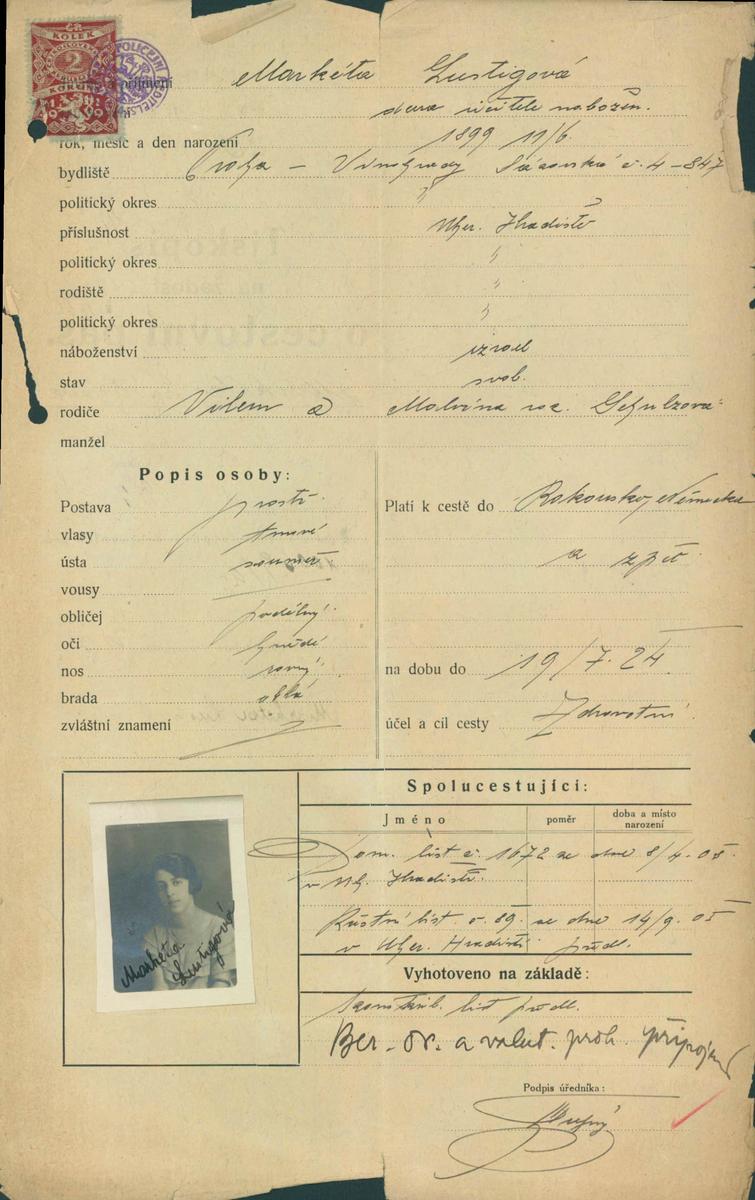 ČR
KOLEK
2
KORUNY
1919
příjmení Markéta Lustigová
dcera učitele nábožen.
rok, měsíc a den narození 1899 11/6.
bydliště Praha – Vinohrady Sázavská č. 4 – 847
politický okres "
příslušnost Uher. Hradiště
politický okres "
rodiště "
politický okres "
náboženství izrael
stav svob.
rodiče Vilém a Malvina roz.
manžel
Popis osoby:
Postava prostř.
vlasy tmavé
ústa souměr.
vousy
obličej podélný
oči hnědé
nos rovný
brada oblá
zvláštní znamení
Platí k cestě do Rakouska, Německa
a zpět.
na dobu do 19/7. 24
účel a cíl cesty Zdravotní
Spolucestující:
Jméno poměr doba a místo narození
Dom. list č. 1672 ze dne 8/4. 05.
v Uh. Hradišti.
list č. 89. ze dne 14/9. 05
v Uher. Hradišti předl.
Markéta
Lustigová
Vyhotoveno na základě:
list předl.
Ber. a valut. proh. připojen
Podpis úředníka: